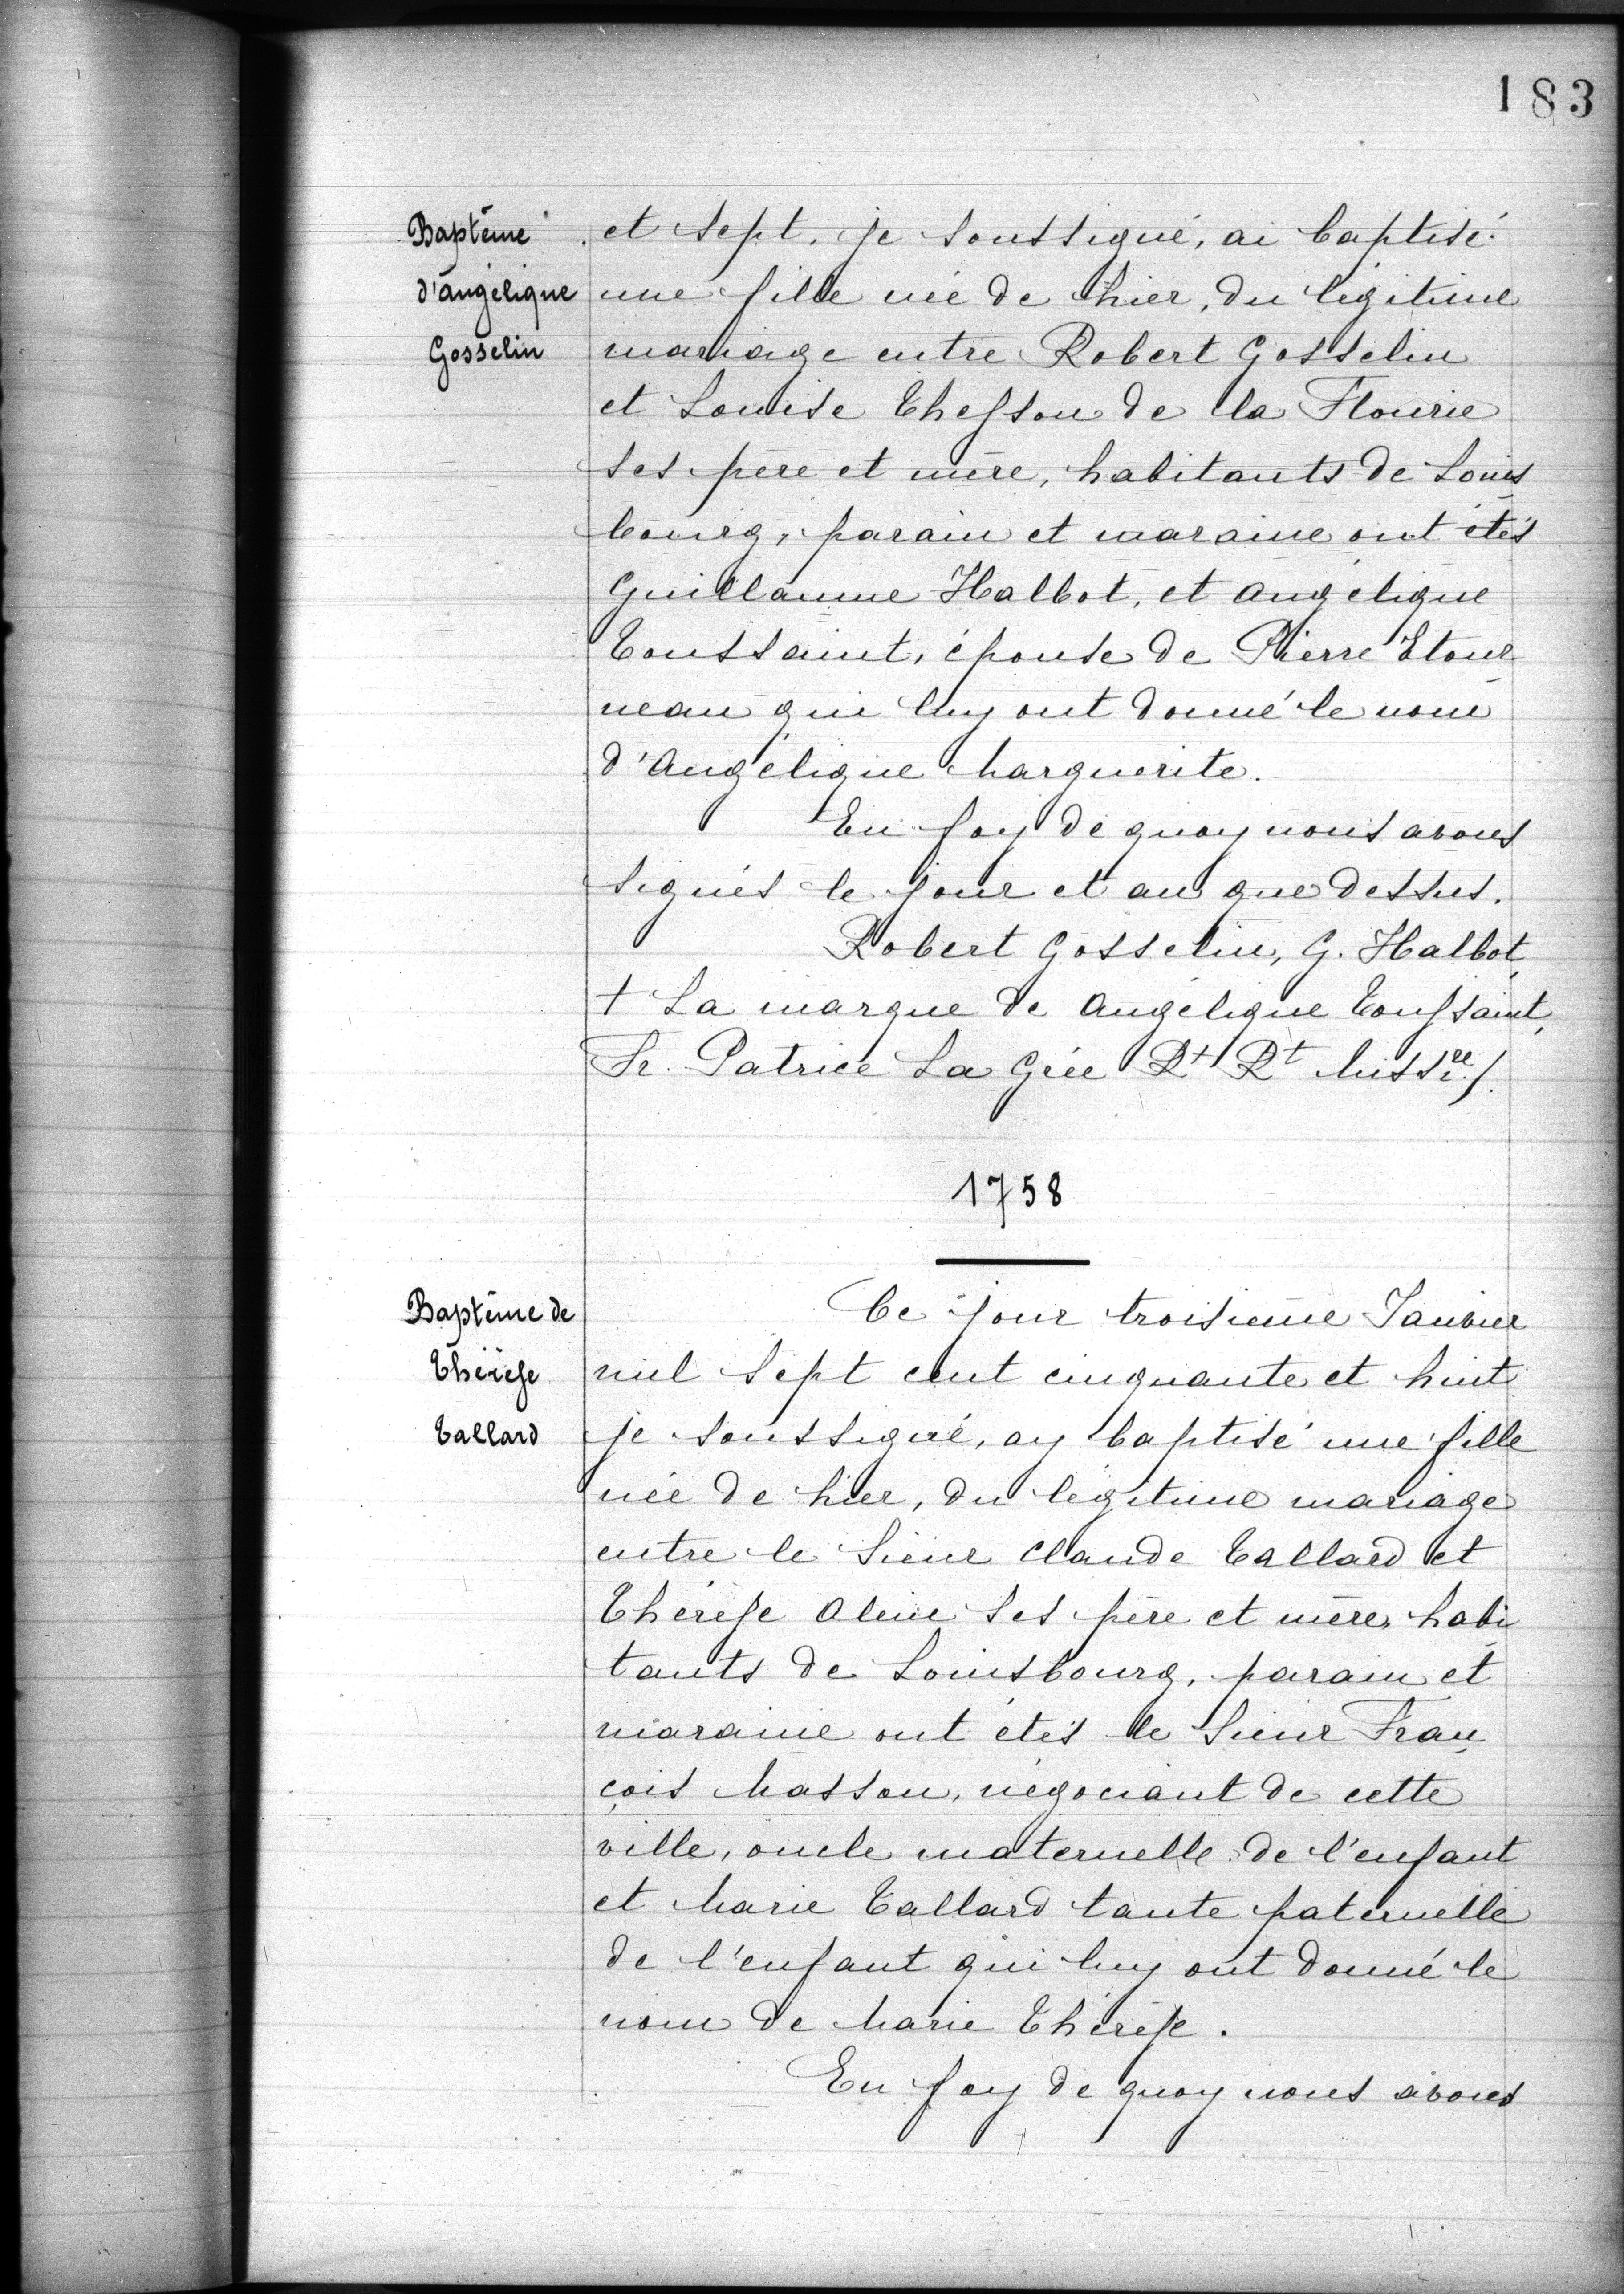 183
Baptême
d'angélique
Gosselin
et sept, je soussigné, ai baptisé
une fille née de hier, du légitime
mariage entre Robert Gosselin
et Louise Thesson de la Flourie
ses père et mère, habitants de Louis
bourg, parain et maraine ont étés
Guillaume Halbot, et angélique
Toussaint, épouse de Pierre Etour
neau qui luy ont donné le nom
d'Angélique Marguerite.
En foy de quoy nous avons
signés le jour et an que dessus.
Robert Gosselin, G. Halbot,
† La marque de angélique Toussaint,
Fr. Patrice La Grée Rt Rt Missre /.
1758
Baptême de
Thérèse
Tallard
Ce jour troisieme Janvier
mil sept cent cinquante et huit
je soussigné, ay baptisé une fille
née de hier, du légitime mariage
entre le Sieur Claude Tallard et
Thérèse Olive ses père et mère, habi
tants de Louisbourg, parain et
maraine ont étés le Sieur Fran
çois Masson, négociant de cette
ville, oncle maternelle de l'enfant
et Marie Tallard tante paternelle
de l'enfant qui luy ont donné le
nom de Marie Thérèse.
En foy de quoy nous avons